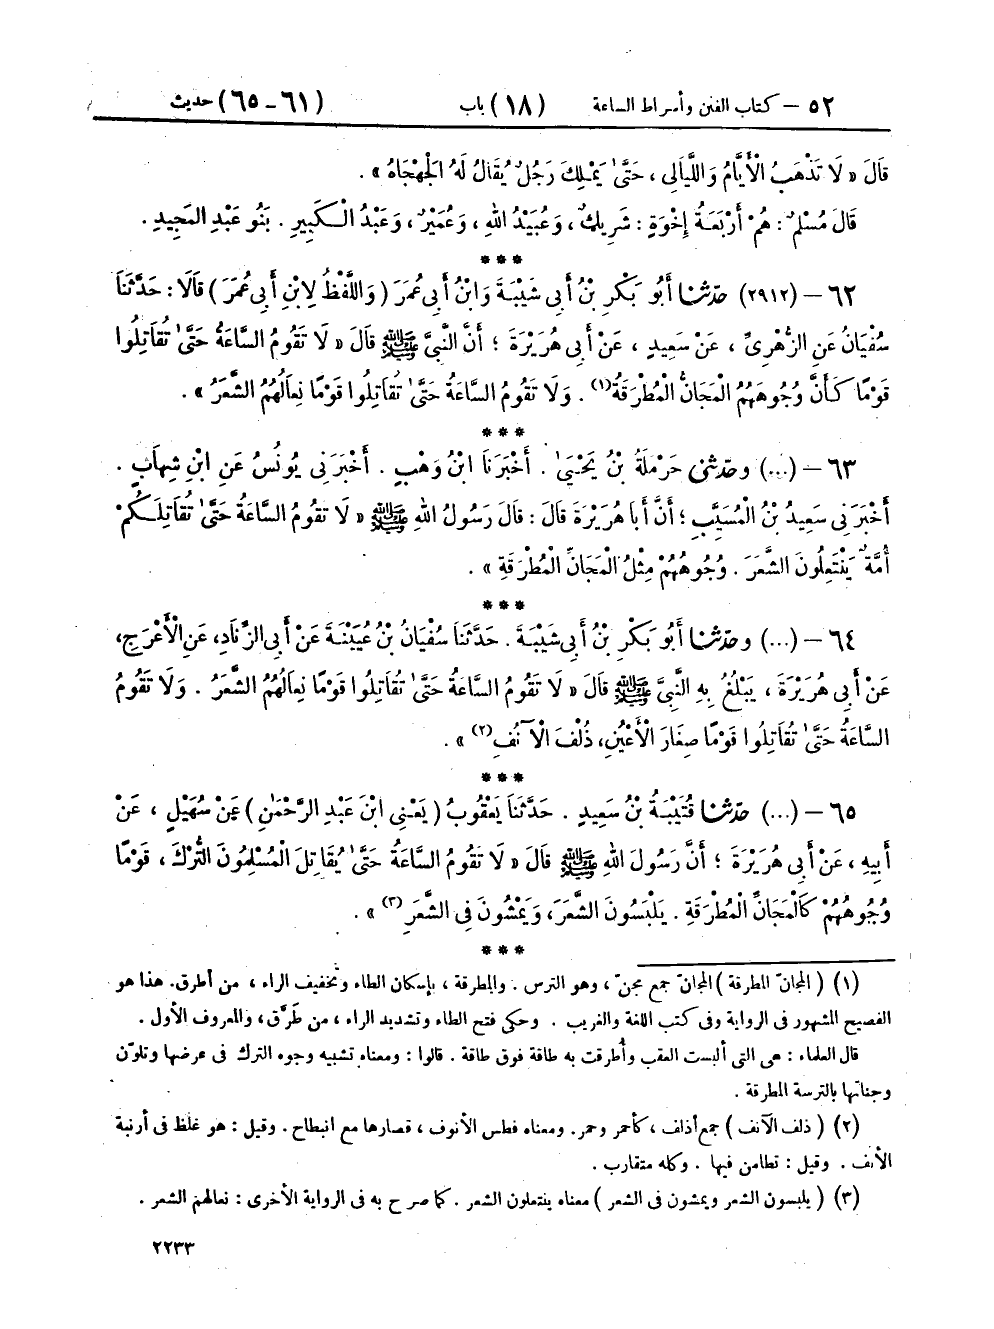 ٥٢ – كتاب الفتن وأشراط الساعة (١٨) باب (٦١-٦٥) حديث
قَالَ « لَا تَذْهَبُ الْأَيَّامُ وَاللَّيَالِي ، حَتَّىٰ يَمْلِكَ رَجُلٌ يُقَالُ لَهُ الْجَهْجَاهُ » .
قَالَ مُسْلِمٌ : هُمْ أَرْبَعَةُ إِخْوَةٍ : شَرِيكٌ ، وَعُبَيْدُ اللهِ ، وَعُمَيْرٌ ، وَعَبْدُ الْكَبِيرِ . بَنُو عَبْدِ الْمَجِيدِ .
***
٦٢ – (٢٩١٢) حدّثنا أَبُو بَكْرِ بْنُ أَبِي شَيْبَةَ وَابْنُ أَبِي عُمَرَ ( وَاللَّفْظُ لِابْنِ أَبِي عُمَرَ ) قَالَا : حَدَّثَنَا
سُفْيَانُ عَنِ الزُّهْرِيِّ ، عَنْ سَعِيدٍ ، عَنْ أَبِي هُرَيْرَةَ ؛ أَنَّ النَّبِيَّ ﷺ قَالَ « لَا تَقُومُ السَّاعَةُ حَتَّىٰ تُقَاتِلُوا
قَوْمًا كَأَنَّ وُجُوهَهُمُ الْمَجَانُّ الْمُطْرَقَةُ(١) . وَلَا تَقُومُ السَّاعَةُ حَتَّىٰ تُقَاتِلُوا قَوْمًا نِعَالُهُمُ الشَّعَرُ » .
***
٦٣ – (...) وحدّثني حَرْمَلَةُ بْنُ يَحْيَىٰ . أَخْبَرَنَا ابْنُ وَهْبٍ . أَخْبَرَنِي يُونُسُ عَنِ ابْنِ شِهَابٍ .
أَخْبَرَنِي سَعِيدُ بْنُ الْمُسَيَّبِ ؛ أَنَّ أَبَا هُرَيْرَةَ قَالَ : قَالَ رَسُولُ اللهِ ﷺ « لَا تَقُومُ السَّاعَةُ حَتَّىٰ تُقَاتِلَكُمْ
أُمَّةٌ يَنْتَعِلُونَ الشَّعَرَ . وُجُوهُهُمْ مِثْلُ الْمَجَانِّ الْمُطْرَقَةِ » .
***
٦٤ – (...) وحدّثنا أَبُو بَكْرِ بْنُ أَبِي شَيْبَةَ . حَدَّثَنَا سُفْيَانُ بْنُ عُيَيْنَةَ عَنْ أَبِي الزِّنَادِ ، عَنِ الْأَعْرَجِ ،
عَنْ أَبِي هُرَيْرَةَ ، يَبْلُغُ بِهِ النَّبِيَّ ﷺ قَالَ « لَا تَقُومُ السَّاعَةُ حَتَّىٰ تُقَاتِلُوا قَوْمًا نِعَالُهُمُ الشَّعَرُ . وَلَا تَقُومُ
السَّاعَةُ حَتَّىٰ تُقَاتِلُوا قَوْمًا صِغَارَ الْأَعْيُنِ ، ذُلْفَ الْآنُفِ(٢) » .
***
٦٥ – (...) حدّثنا قُتَيْبَةُ بْنُ سَعِيدٍ . حَدَّثَنَا يَعْقُوبُ ( يَعْنِي ابْنَ عَبْدِ الرَّحْمَٰنِ ) عَنْ سُهَيْلٍ ، عَنْ
أَبِيهِ ، عَنْ أَبِي هُرَيْرَةَ ؛ أَنَّ رَسُولَ اللهِ ﷺ قَالَ « لَا تَقُومُ السَّاعَةُ حَتَّىٰ يُقَاتِلَ الْمُسْلِمُونَ التُّرْكَ ، قَوْمًا
وُجُوهُهُمْ كَالْمَجَانِّ الْمُطْرَقَةِ . يَلْبَسُونَ الشَّعَرَ ، وَيَمْشُونَ فِي الشَّعَرِ(٣) » .
***
(١) ( المجانّ المطرقة ) المجانّ جمع مجنّ ، وهو الترس . والمطرقة ، بإسكان الطاء وتخفيف الراء ، من أطرق. هذا هو
الفصيح المشهور في الرواية وفي كتب اللغة والغريب . وحكي فتح الطاء وتشديد الراء ، من طَرَّق ، والمعروف الأول .
قال العلماء : هي التي ألبست العقب وأُطرقت به طاقة فوق طاقة . قالوا : ومعناه تشبيه وجوه الترك في عرضها وتلوّن
وجناتها بالترسة المطرقة .
(٢) ( ذلف الآنف ) جمع أذلف ، كأحمر وحمر. ومعناه فطس الأنوف ، قصارها مع انبطاح . وقيل : هو غلظ في أرنبة
الأنف . وقيل : تطامن فيها . وكله متقارب .
(٣) ( يلبسون الشعر ويمشون في الشعر ) معناه ينتعلون الشعر . كما صرح به في الرواية الأخرى : نعالهم الشعر .
٢٢٣٣